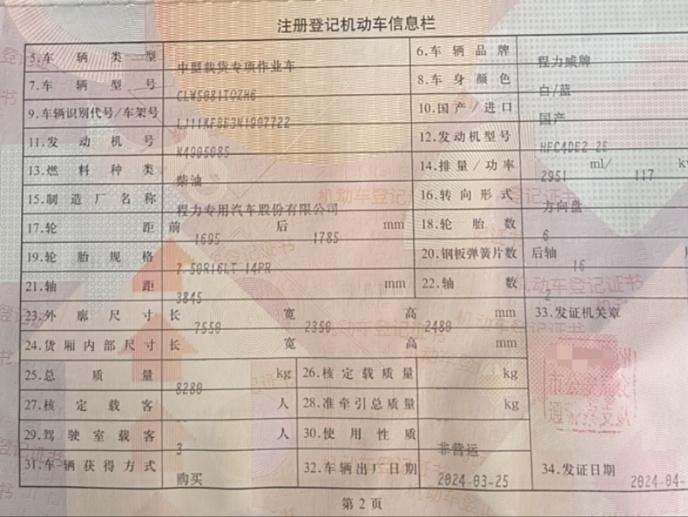 注册登记机动车信息栏
5.车辆类型 中型载货专项作业车 6.车辆品牌 程力威牌
7.车辆型号 CLW5081TQZH6 8.车身颜色 白/蓝
9.车辆识别代号/车架号 10.国产/进口 国产
11.发动机号 N4905085 12.发动机型号 HFC4DE2-2E
13.燃料种类 柴油 14.排量/功率 2951 ml/ 117
15.制造厂名称 程力专用汽车股份有限公司 16.转向形式 方向盘
17.轮距 前 1695 后 1785 mm 18.轮胎数 6
19.轮胎规格 7.50R16LT 14PR 20.钢板弹簧片数 后轴
21.轴距 3845 mm 22.轴数 2
23.外廓尺寸 长 7550 宽 2350 高 2480 mm 33.发证机关章
24.货厢内部尺寸 长 宽 高 mm
25.总质量 8280 kg 26.核定载质量 kg
27.核定载客 人 28.准牵引总质量 kg
29.驾驶室载客 3 人 30.使用性质 非营运
31.车辆获得方式 购买 32.车辆出厂日期 2024-03-25 34.发证日期 2024-04-
第2页